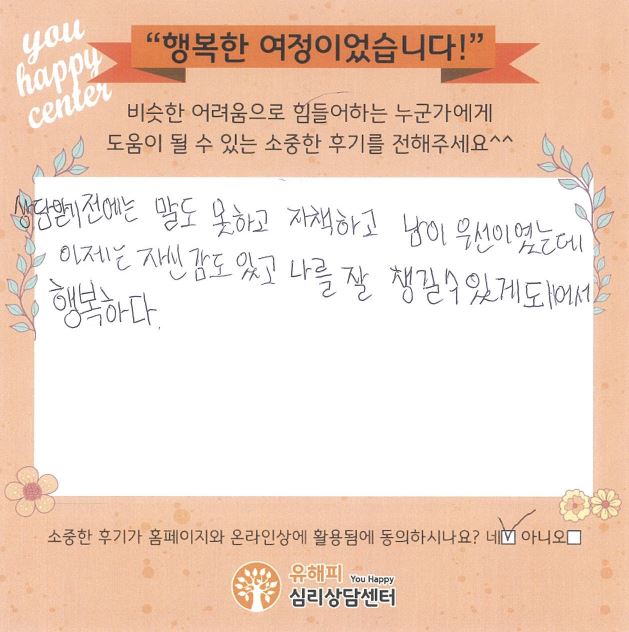 you
happy
center
“행복한 여정이었습니다!”
비슷한 어려움으로 힘들어하는 누군가에게
도움이 될 수 있는 소중한 후기를 전해주세요^^
상담받기전에는 말도 못하고 자책하고 남이 우선이였는데
이제는 자신감도 있고 나를 잘 챙길수있게되어서
행복하다.
소중한 후기가 홈페이지와 온라인상에 활용됨에 동의하시나요? 네☑ 아니오□
유해피 You Happy
심리상담센터